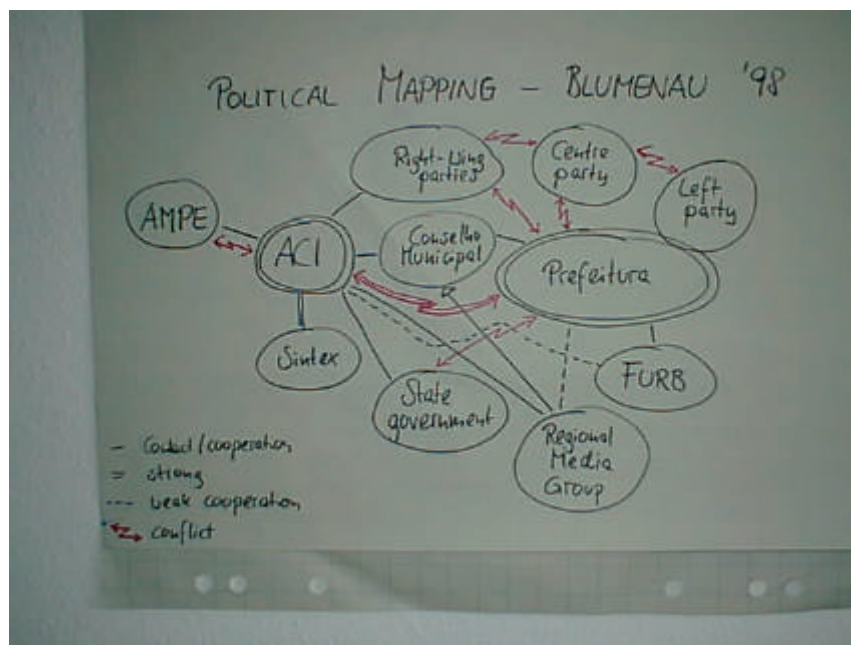 POLITICAL MAPPING – BLUMENAU '98
Right-Wing
parties
Centre
party
Left
party
AMPE
ACI
Conselho
Municipal
Prefeitura
Sintex
State
government
FURB
Regional
Media
Group
– Contact/cooperation
= strong
--- weak cooperation
conflict